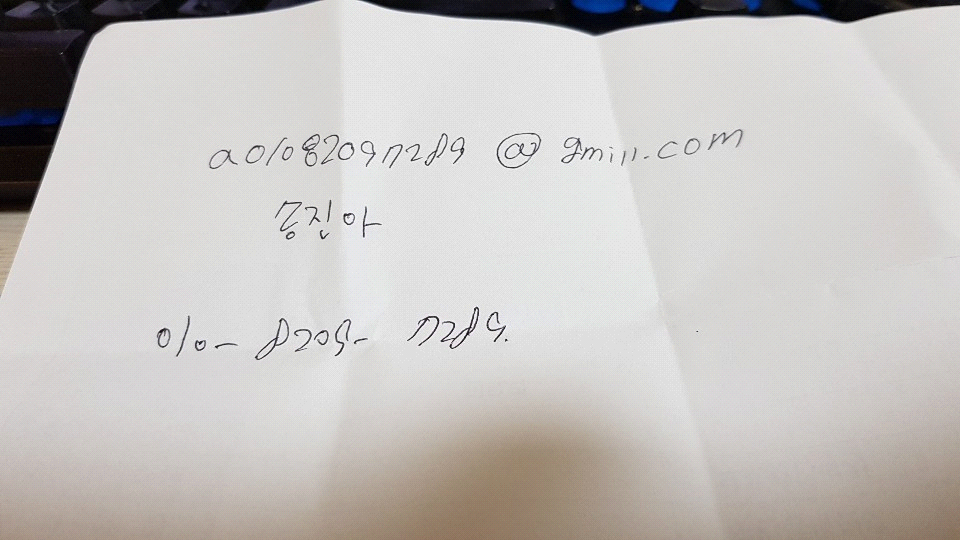 a01082097289 @ gmill.com
홍진아
010- 8209- 7289.